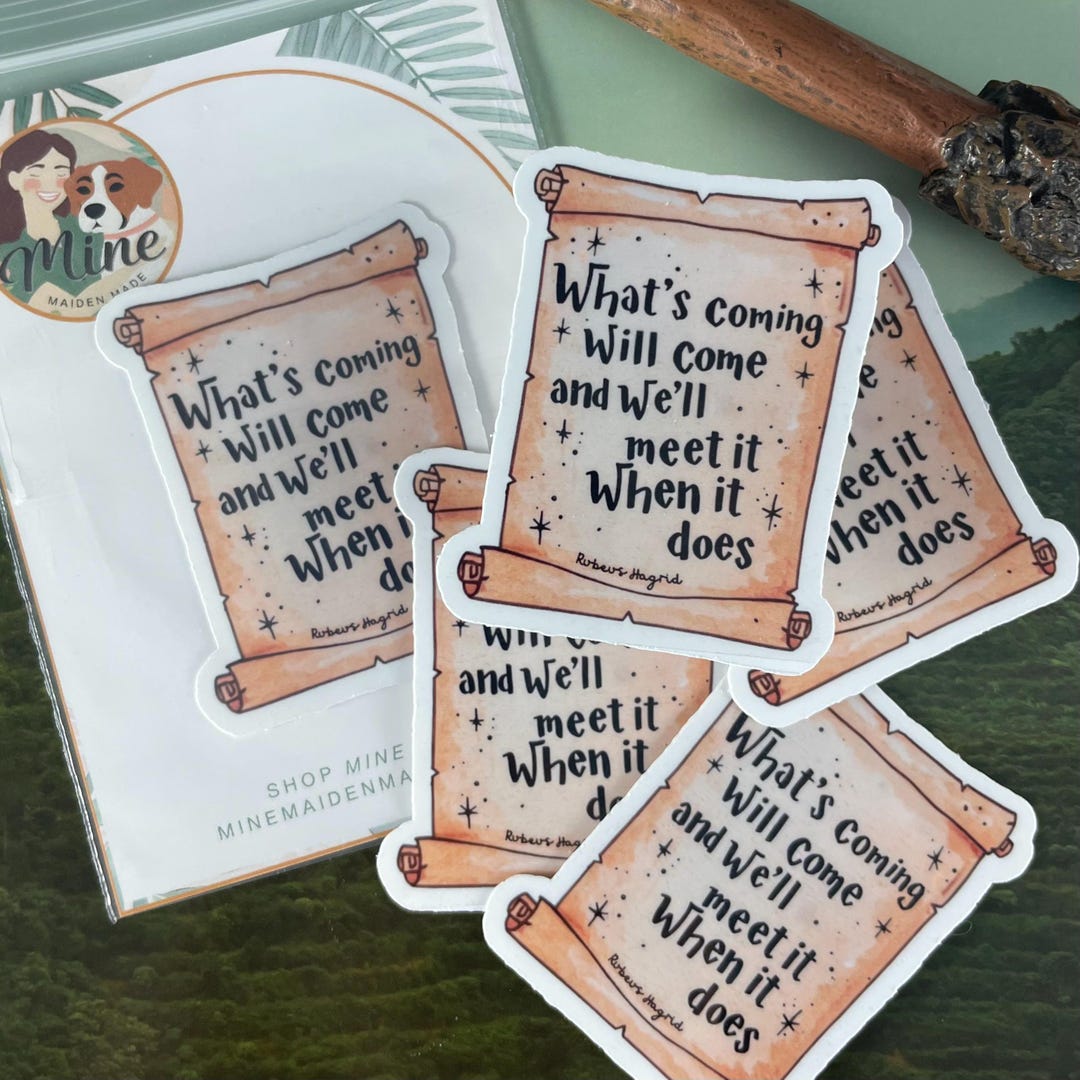 Mine
MAIDEN MADE
What's coming
Will come
and We'll
meet it
When it
does
Rubeus Hagrid
SHOP MINE
MINEMAIDENMA
What's coming
Will come
and We'll
meet it
When it
does
Rubeus Hagrid
meet it
When it
does
Rubeus Hagrid
and We'll
meet it
When it
What's coming
Will come
and We'll
meet it
When it
does
Rubeus Hagrid